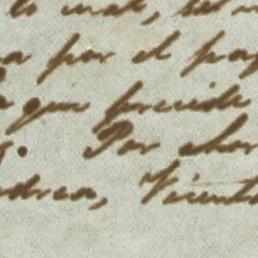 lo cual, se
a por el pa
que precede
Por ahor
drea, Vicent